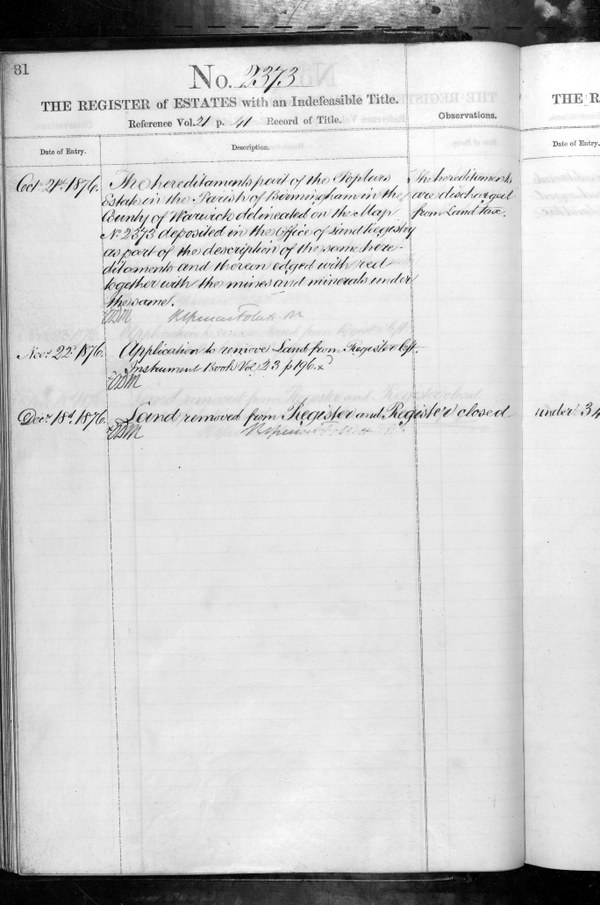 81
No. 2373
THE REGISTER of ESTATES with an Indefeasible Title.
Reference Vol. 21 p. 41 Record of Title.
Observations.
Date of Entry.
Description.
Octr 21st 1876.
The hereditaments part of the Poplars
Estate in the Parish of Birmingham in the
County of Warwick delineated on the Map
No 2373 deposited in the Office of Land Registry
as part of the description of the same here-
ditaments and thereon edged with red
together with the mines and minerals under
the same.
The hereditaments
are discharged
from Land tax.
Novr 22d 1876.
Application to remove Land from Register &c.
Instrument Book Vol. 23 p 196.
Decr 18th 1876.
Land removed from Register and Register closed
THE R
Date of Entry.
under 34